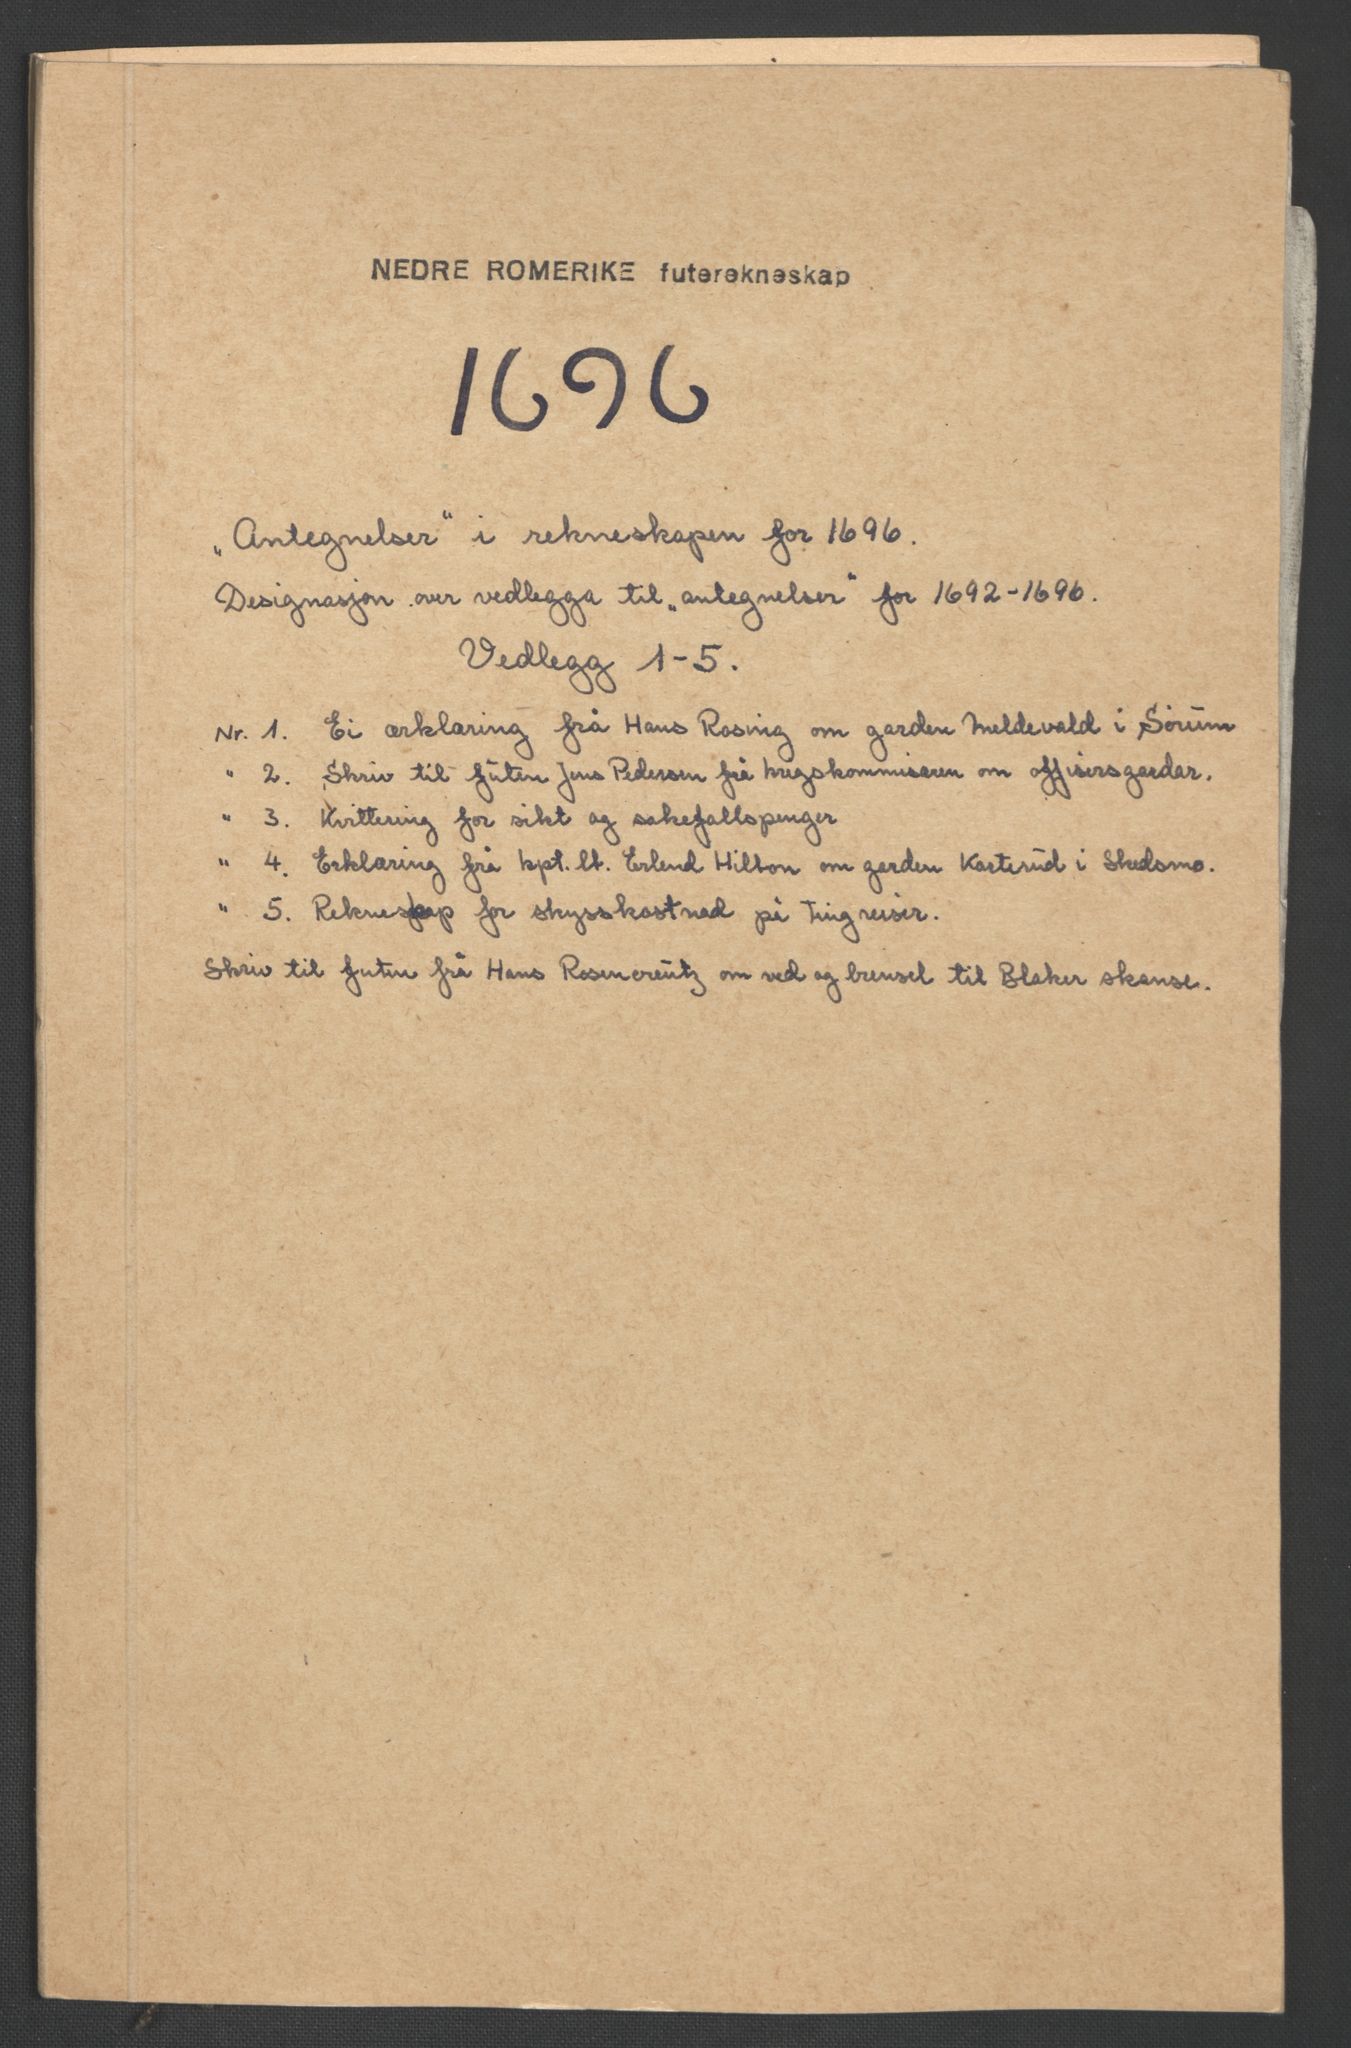 NEDRE ROMERIKE futerekneskap
1696
„Antegnelser“ i rekneskapen for 1696.
Designasjon over vedlegga til „antegnelser“ for 1692-1696.
Vedlegg 1-5.
Nr. 1. Ei ærklæring frå Hans Rosing om garden Meldevald i Sørum
" 2. Skriv til futen Jens Pedersen frå krigskommisæren om offisersgardar.
" 3. Kvittering for sikt og sakefallspenger
" 4. Erklæring frå kpt. lt. Erlend Hilton om garden Karterud i Skedsmo.
" 5. Rekneskap for skysskostnad på Tingreiser.
Skriv til futen frå Hans Rosencreutz om ved og brensel til Blaker skanse.